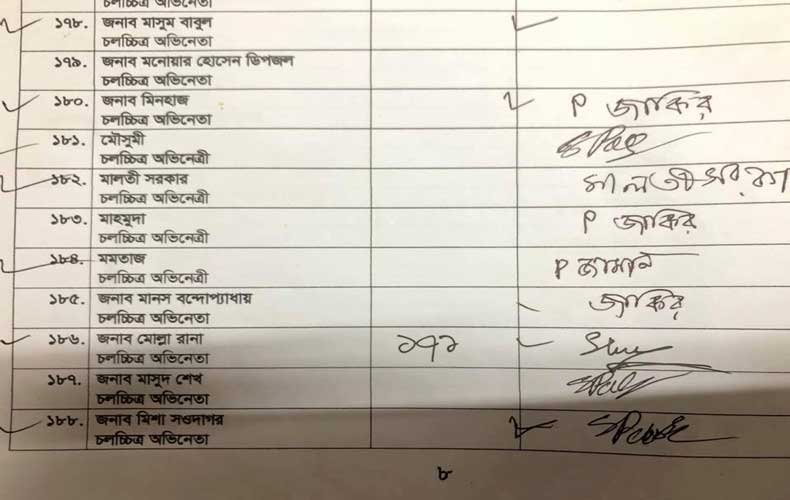 চলচ্চিত্র অভিনেতা
১৭৮. জনাব মাসুম বাবুল
চলচ্চিত্র অভিনেতা
১৭৯. জনাব মনোয়ার হোসেন ডিপজল
চলচ্চিত্র অভিনেতা
১৮০. জনাব মিনহাজ P জাকির
চলচ্চিত্র অভিনেতা
১৮১. মৌসুমী
চলচ্চিত্র অভিনেত্রী
১৮২. মালতী সরকার মালতী সরকার
চলচ্চিত্র অভিনেত্রী
১৮৩. মাহমুদা P জাকির
চলচ্চিত্র অভিনেত্রী
১৮৪. মমতাজ P জামান
চলচ্চিত্র অভিনেত্রী
১৮৫. জনাব মানস বন্দোপ্যাধায় জাকির
চলচ্চিত্র অভিনেতা
১৮৬. জনাব মোল্লা রানা ১৭১
চলচ্চিত্র অভিনেতা
১৮৭. জনাব মাসুদ শেখ
চলচ্চিত্র অভিনেতা
১৮৮. জনাব মিশা সওদাগর
চলচ্চিত্র অভিনেতা
৮